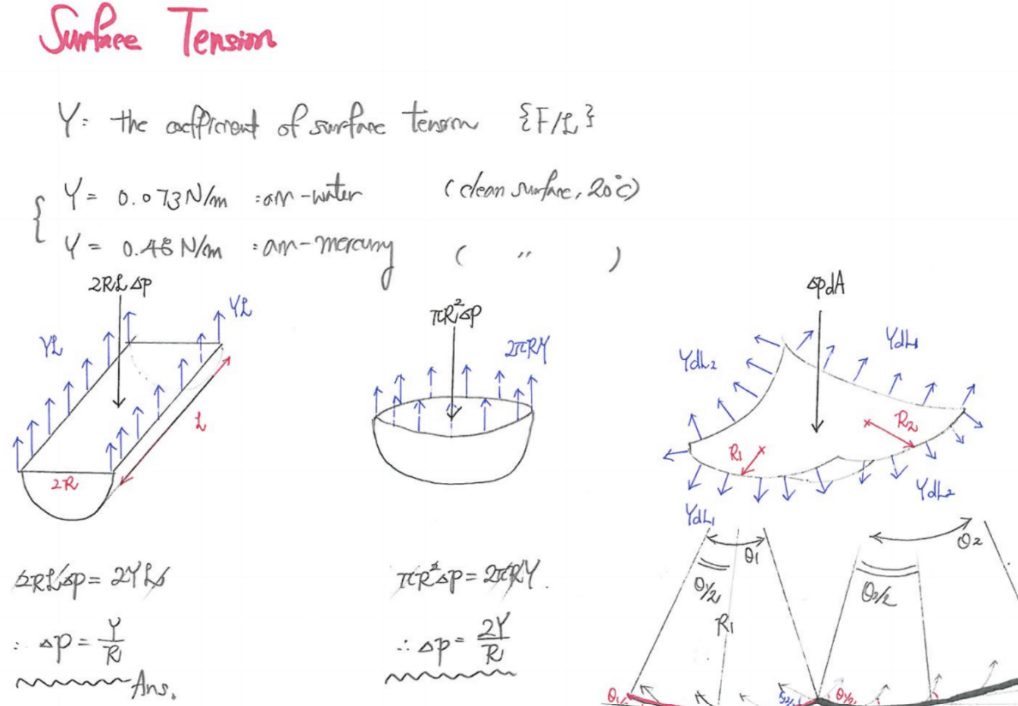 Surface Tension
Y: the coefficient of surface tension {F/L}
Y = 0.073 N/m : air-water (clean surface, 20°C)
Y = 0.48 N/m : air-mercury ( " )
2RLΔp
YL
YL
L
2R
πR²Δp
2πRY
ΔpdA
YdL₂
YdL₁
R₁
R₂
YdL₁
YdL₂
2RLΔp = 2YL
∴ Δp = Y/R
Ans.
πR²Δp = 2πRY
∴ Δp = 2Y/R
θ₁
θ₁/2
R₁
θ₂
θ₂/2